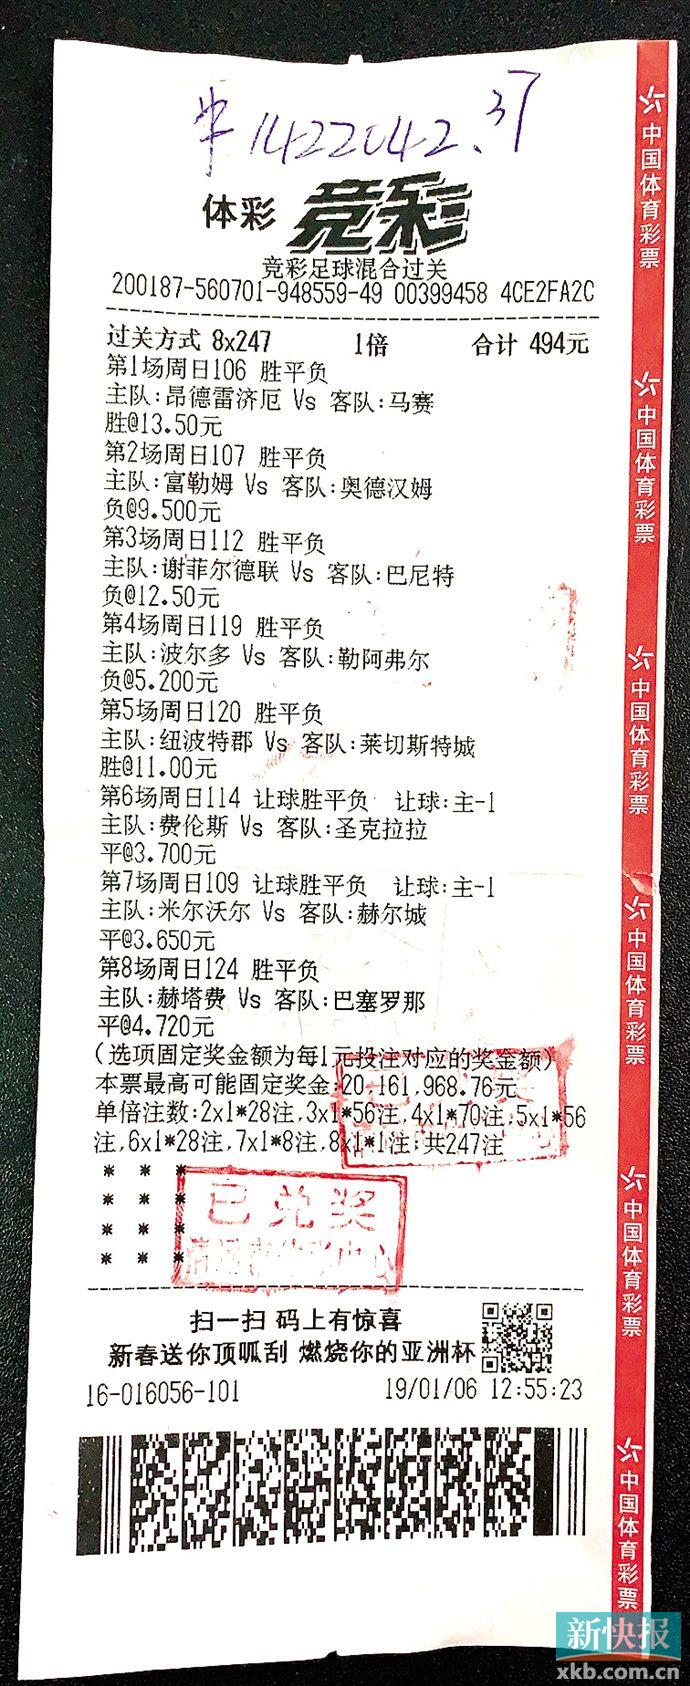 中1422042.37
体彩 竞彩
竞彩足球混合过关
200187-560701-948559-49 00399458 4CE2FA2C
过关方式 8x247 1倍 合计 494元
第1场周日106 胜平负
主队:昂德雷济厄 Vs 客队:马赛
胜@13.50元
第2场周日107 胜平负
主队:富勒姆 Vs 客队:奥德汉姆
负@9.500元
第3场周日112 胜平负
主队:谢菲尔德联 Vs 客队:巴尼特
负@12.50元
第4场周日119 胜平负
主队:波尔多 Vs 客队:勒阿弗尔
负@5.200元
第5场周日120 胜平负
主队:纽波特郡 Vs 客队:莱切斯特城
胜@11.00元
第6场周日114 让球胜平负 让球:主-1
主队:费伦斯 Vs 客队:圣克拉拉
平@3.700元
第7场周日109 让球胜平负 让球:主-1
主队:米尔沃尔 Vs 客队:赫尔城
平@3.650元
第8场周日124 胜平负
主队:赫塔费 Vs 客队:巴塞罗那
平@4.720元
(选项固定奖金额为每1元投注对应的奖金额)
本票最高可能固定奖金:20,161,968.76元
单倍注数:2x1*28注,3x1*56注,4x1*70注,5x1*56
注,6x1*28注,7x1*8注,8x1*1注;共247注
* * *
* * *
* * *
* * *
已兑奖
扫一扫 码上有惊喜
新春送你顶呱刮 燃烧你的亚洲杯
16-016056-101 19/01/06 12:55:23
中国体育彩票
中国体育彩票
中国体育彩票
中国体育彩票
中国体育彩票
中国体育彩票
新快报
xkb.com.cn